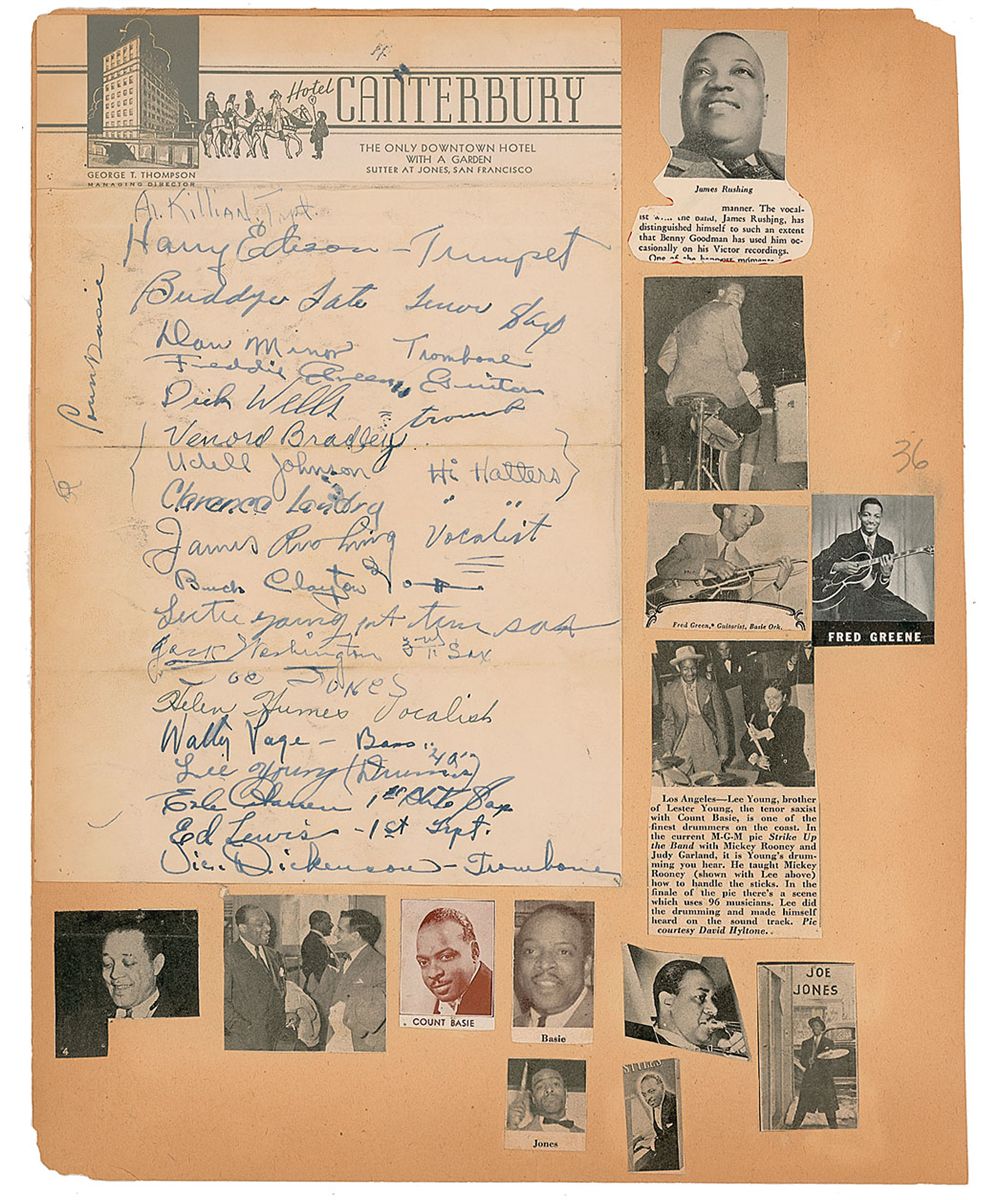 Hotel CANTERBURY
THE ONLY DOWNTOWN HOTEL
WITH A GARDEN
SUTTER AT JONES, SAN FRANCISCO
GEORGE T. THOMPSON
MANAGING DIRECTOR
Al. Killian, Trpt.
Harry Edison - Trumpet
Count Basie
Buddy Tate Tenor Sax
Dan Minor Trombone
Freddie Green, Guitar
Dick Wells = tromb
Vernord Bradley
Udell Johnson Hi Hatters
Clarence Landry " "
James Rushing Vocalist
Buck Clayton
Lester young
Jack Washington 3rd Sax
Joe Jones
Helen Humes Vocalist
Walter Page - Bass
Lee Young (Drums)
Earle Warren 1st Alto Sax
Ed Lewis - 1st Trpt.
Vic. Dickenson - Trombone
James Rushing
manner. The vocal-
ist the band, James Rushing, has
distinguished himself to such an extent
that Benny Goodman has used him oc-
casionally on his Victor recordings.
One of the happy moments
36
Fred Green,* Guitarist, Basie Ork.
FRED GREENE
Los Angeles—Lee Young, brother
of Lester Young, the tenor saxist
with Count Basie, is one of the
finest drummers on the coast. In
the current M-G-M pic Strike Up
the Band with Mickey Rooney and
Judy Garland, it is Young's drum-
ming you hear. He taught Mickey
Rooney (shown with Lee above)
how to handle the sticks. In the
finale of the pic there's a scene
which uses 96 musicians. Lee did
the drumming and made himself
heard on the sound track. Pic
courtesy David Hyltone.
4
COUNT BASIE
Basie
JOE
JONES
Jones